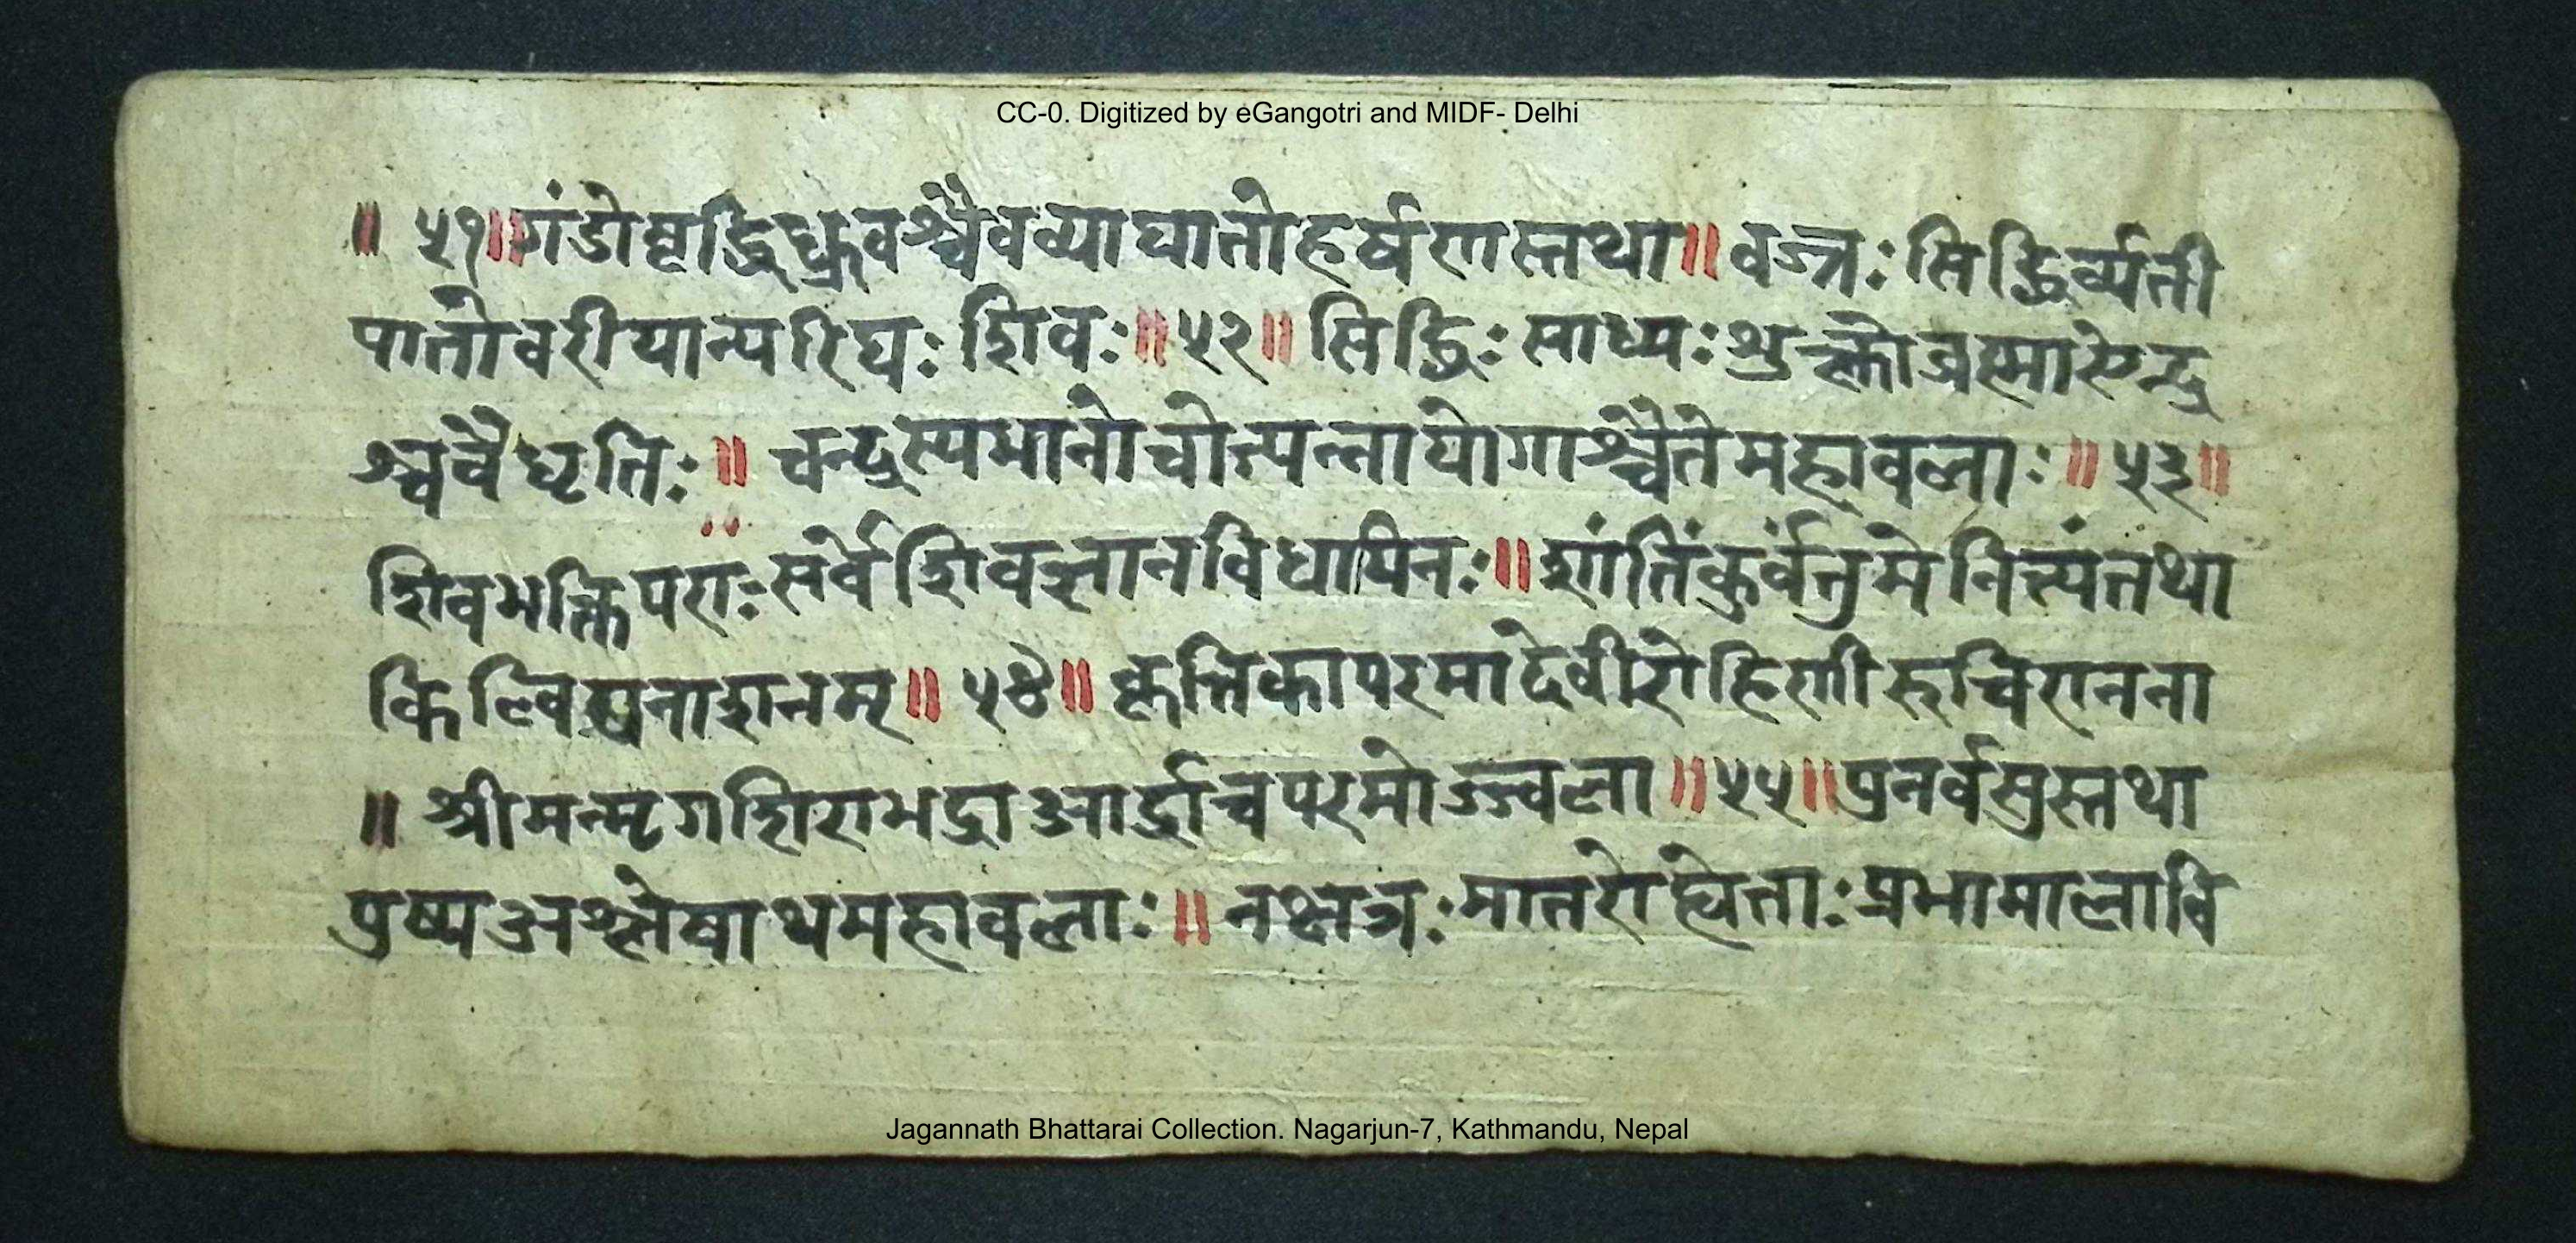 CC-0. Digitized by eGangotri and MIDF- Delhi
॥ ५१॥गंडोवृद्धिध्रुवश्चैवव्याघातोहर्षणस्तथा॥ वज्र: सिद्धिर्व्यती
पातोवरीयान्परिघ: शिव:॥ ५२॥ सिद्धि: साध्य: शुक्लोब्रह्मासेन्द्र
श्चवैधृति: ॥ चन्द्रस्यभानोचोत्पन्नायोगाश्चैतेमहावला: ॥ ५३॥
शिवभक्तिपरा: सर्वेशिवज्ञानविधायिन: ॥ शांतिंकुर्वंतुमेनित्यंतथा
किल्विषनाशनम् ॥ ५४॥ कृत्तिकापरमादेवीरोहिणीरुचिरानना
॥ श्रीमन्मृगशिराभद्राआर्द्राचपरमोज्ज्वला ॥ ५५॥पुनर्वसुस्तथा
पुष्यअश्लेषाथमहावला: ॥ नक्षत्र: मातरोह्येता: प्रभामालावि
Jagannath Bhattarai Collection. Nagarjun-7, Kathmandu, Nepal